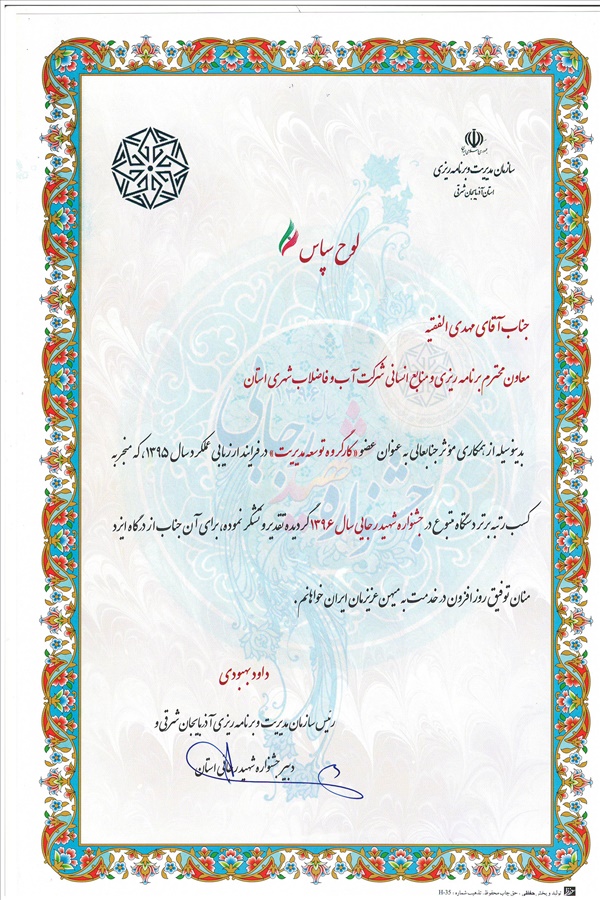 جمهوری اسلامی ایران
سازمان مدیریت و برنامه ریزی
استان آذربایجان شرقی
لوح سپاس
جناب آقای مهدی الفقیه
معاون محترم برنامه ریزی و منابع انسانی شرکت آب و فاضلاب شهری استان
بدینوسیله از همکاری مؤثر جنابعالی به عنوان عضو «کارگروه توسعه مدیریت» در فرایند ارزیابی عملکرد سال ۱۳۹۵، که منجر به
کسب رتبه برتر دستگاه متبوع در جشنواره شهید رجایی سال ۱۳۹۶ گردیده تقدیر و تشکر نموده، برای آن جناب از درگاه ایزد
منان توفیق روز افزون در خدمت به میهن عزیزمان ایران خواهانم.
داود بهبودی
رئیس سازمان مدیریت و برنامه ریزی آذربایجان شرقی و
دبیر جشنواره شهید رجایی استان
تولید و پخش حقطی ، حق چاپ محفوظ. تذهیب شماره : H-35